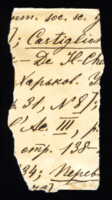 um. soc. sc. g
]; Castiglio
— De H-Che
Харьков.
31, N 8];
Ac. III,
стр. 138-
34; Перев